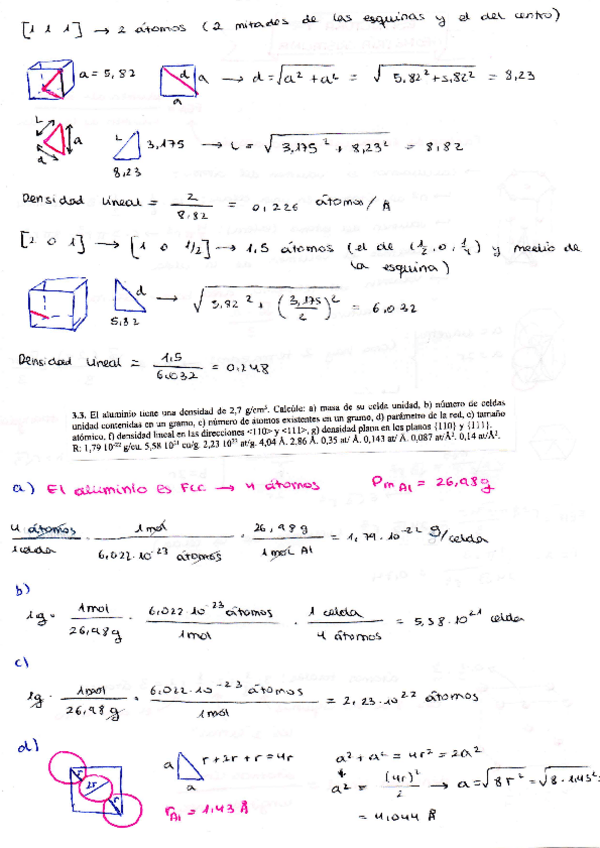 [1 1 1] → 2 átomos (2 mitades de las esquinas y el del centro)
a = 5,82
d a → d = √a² + a² = √5,82² + 5,82² = 8,23
a
L a a
L 3,175 → L = √3,175² + 8,23² = 8,82
8,23
Densidad lineal = 2 / 8,82 = 0,226 átomos/Å
[2 0 1] → [1 0 1/2] → 1,5 átomos (el de (1/2, 0, 1/4) y medio de
la esquina)
d → √5,82² + (3,175/2)² = 6,032
5,82
Densidad lineal = 1,5 / 6,032 = 0,248
3.3. El aluminio tiene una densidad de 2,7 g/cm³. Calcúle: a) masa de su celda unidad, b) número de celdas
unidad contenidas en un gramo, c) número de átomos existentes en un gramo, d) parámetro de la red, e) tamaño
atómico, f) densidad lineal en las direcciones <110> y <111>, g) densidad plana en los planos {110} y {111}.
R: 1,79 10⁻²² g/cu. 5,58 10²¹ cu/g. 2,23 10²² at/g. 4,04 Å. 2.86 Å. 0,35 at/ Å. 0,143 at/ Å. 0,087 at/Å². 0,14 at/Å².
a) El aluminio es FCC → 4 átomos Pm Al = 26,98g
4 átomos / 1 celda · 1 mol / 6,022·10⁻²³ átomos · 26,98 g / 1 mol Al = 1,79·10⁻²² g/celda
b)
1g · 1 mol / 26,98 g · 6,022·10⁻²³ átomos / 1 mol · 1 celda / 4 átomos = 5,58·10²¹ celda
c)
1g · 1 mol / 26,98 g · 6,022·10⁻²³ átomos / 1 mol = 2,23·10²² átomos
d)
r 2r r
a r + 2r + r = 4r
a
r Al = 1,43 Å
a² + a² = 4r² = 2a²
a² = (4r)² / 2 → a = √8r² = √8·1,43²
= 4,044 Å